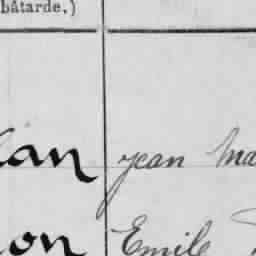 bâtarde.)
an Jean Ma
on Emile